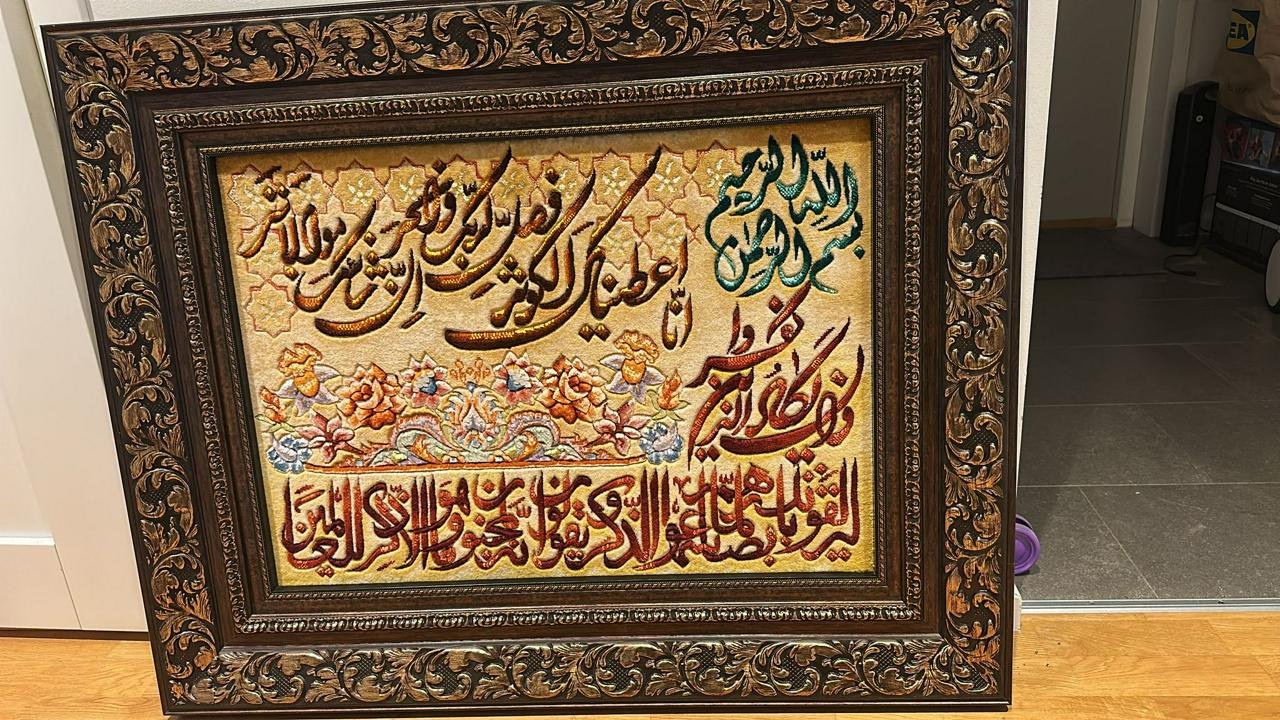 بسم الله الرحمن الرحیم
انا اعطیناک الکوثر فصل لربک وانحر ان شانئک هو الابتر
وان یکاد الذین کفروا
لیزلقونک بابصارهم لما سمعوا الذکر و یقولون انه لمجنون و ما هو الا ذکر للعالمین
EA